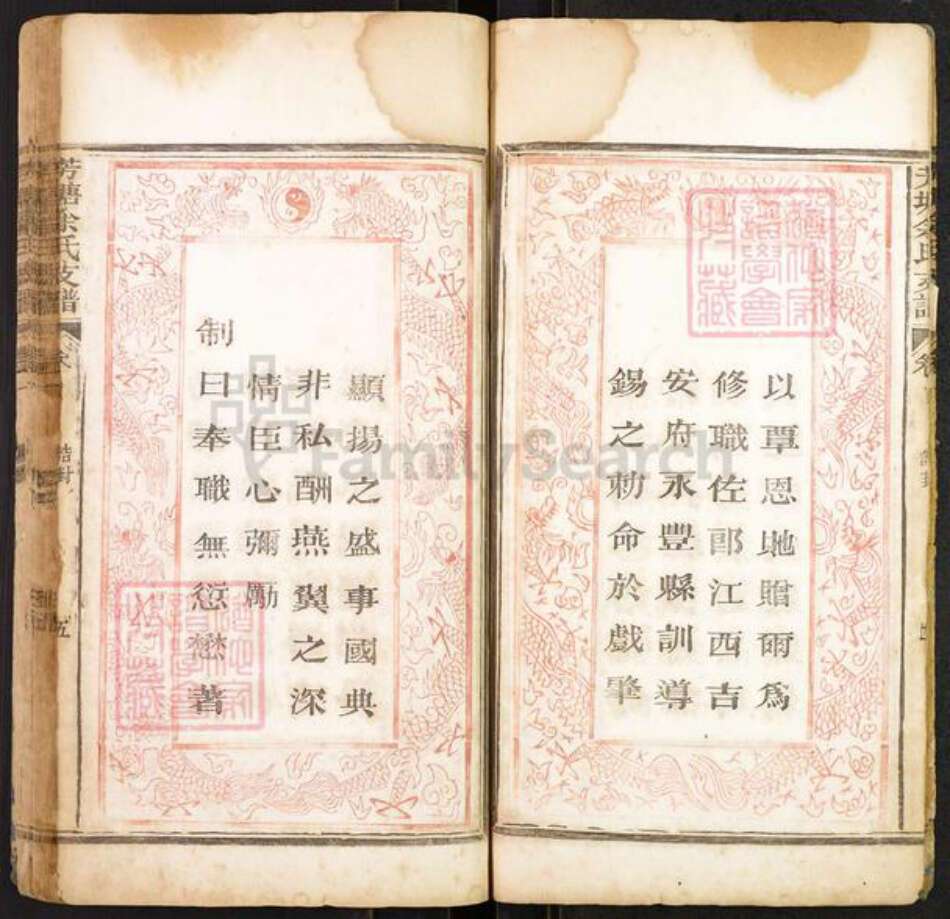 以覃恩地贈爾為
修職佐郎江西吉
安府永豐縣訓導
錫之勅命於戲肇
顯揚之盛事國典
非私酬燕翼之深
情臣心彌勵
制曰奉職無愆懋著
芳塘余氏支譜
誥封
五
FamilySearch